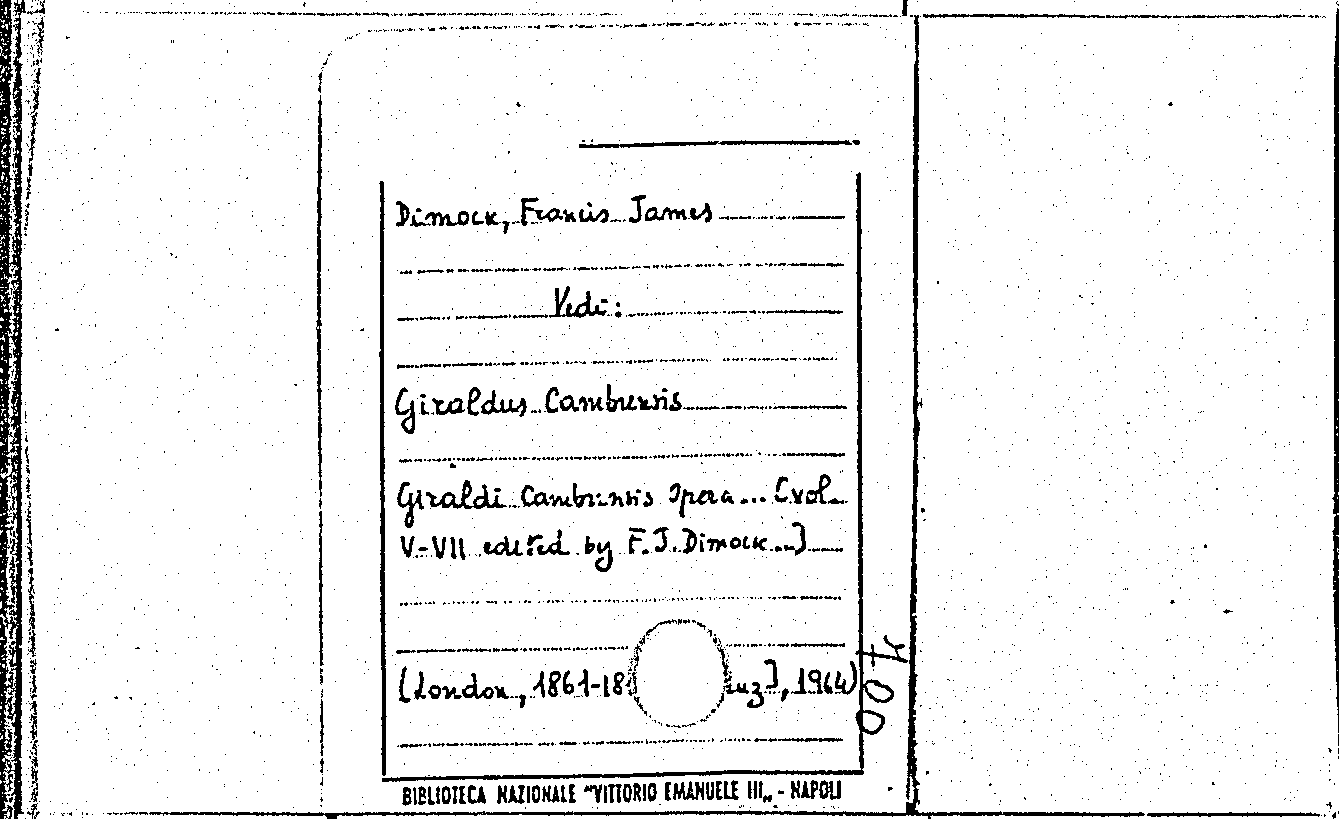 Dimock, Francis James
Vedi:
Giraldus Cambrensis
Giraldi Cambrensis Opera... [vol.
V-VII edited by F.J. Dimock...]
(London, 1861-18 uz], 1964)
BIBLIOTECA NAZIONALE "VITTORIO EMANUELE III„ - NAPOLI